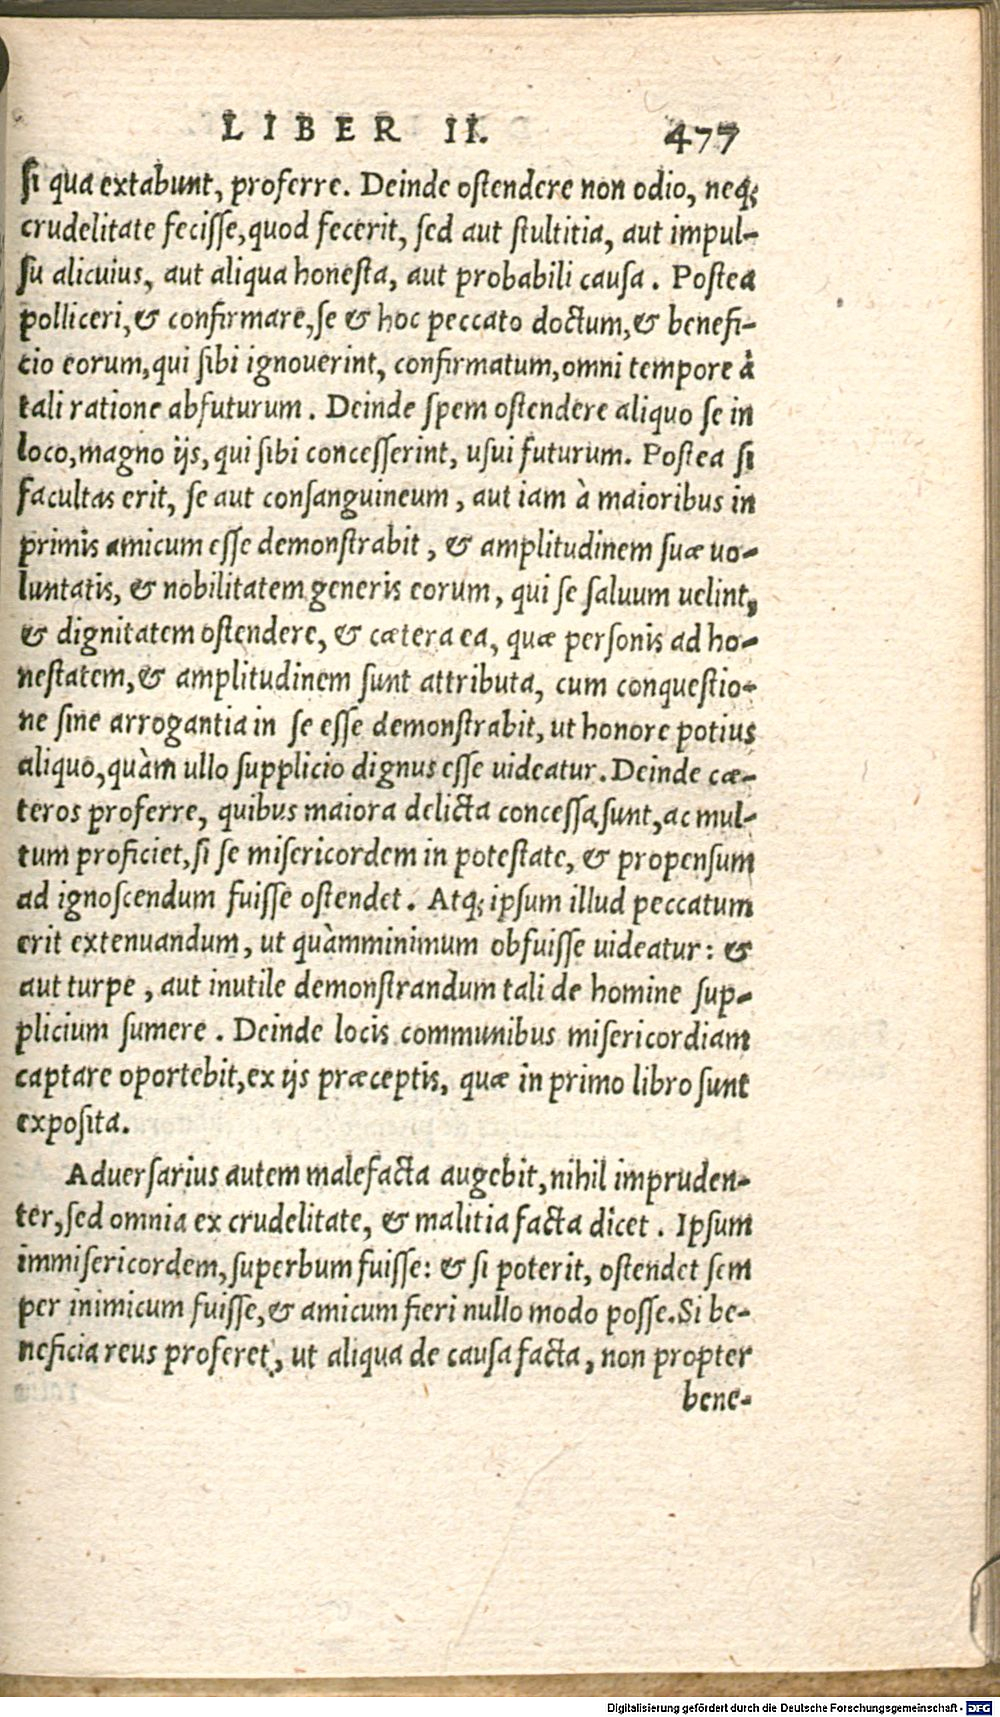 LIBER II. 477
ſi qua extabunt, proferre. Deinde oſtendere non odio, neq;
crudelitate feciſſe, quod fecerit, ſed aut ſtultitia, aut impul-
ſu alicuius, aut aliqua honeſta, aut probabili cauſa. Poſtea
polliceri, & confirmare, ſe & hoc peccato doctum, & benefi-
cio eorum, qui ſibi ignouerint, confirmatum, omni tempore à
tali ratione abfuturum. Deinde ſpem oſtendere aliquo ſe in
loco, magno ijs, qui ſibi conceſſerint, uſui futurum. Poſtea ſi
facultas erit, ſe aut conſanguineum, aut iam à maioribus in
primis amicum eſſe demonſtrabit, & amplitudinem ſuæ uo-
luntatis, & nobilitatem generis eorum, qui ſe ſaluum uelint,
& dignitatem oſtendere, & cætera ea, quæ perſonis ad ho-
neſtatem, & amplitudinem ſunt attributa, cum conqueſtio-
ne ſine arrogantia in ſe eſſe demonſtrabit, ut honore potius
aliquo, quàm ullo ſupplicio dignus eſſe uideatur. Deinde cæ-
teros proferre, quibus maiora delicta conceſſa ſunt, ac mul-
tum proficiet, ſi ſe miſericordem in poteſtate, & propenſum
ad ignoſcendum fuiſſe oſtendet. Atq; ipſum illud peccatum
erit extenuandum, ut quàmminimum obfuiſſe uideatur: &
aut turpe, aut inutile demonſtrandum tali de homine ſup-
plicium ſumere. Deinde locis communibus miſericordiam
captare oportebit, ex ijs præceptis, quæ in primo libro ſunt
expoſita.
Aduerſarius autem malefacta augebit, nihil impruden-
ter, ſed omnia ex crudelitate, & malitia facta dicet. Ipſum
immiſericordem, ſuperbum fuiſſe: & ſi poterit, oſtendet ſem
per inimicum fuiſſe, & amicum fieri nullo modo poſſe. Si be-
neficia reus proferet, ut aliqua de cauſa facta, non propter
bene-
Digitalisierung gefördert durch die Deutsche Forschungsgemeinschaft - DFG